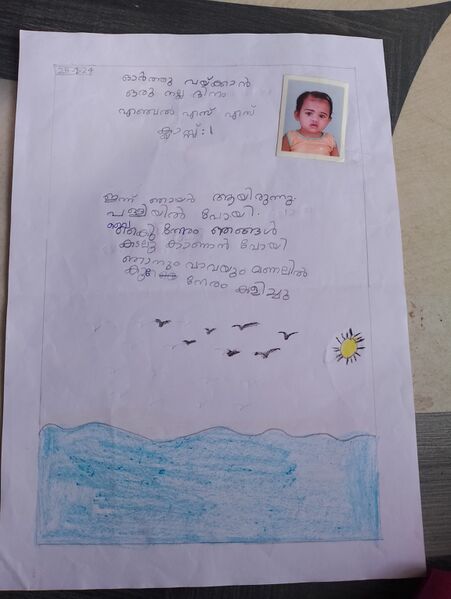 25-9-24
ഓർത്തു വയ്ക്കാൻ
ഒരു നല്ല ദിനം
എഞ്ചൽ എസ് എസ്
ക്ലാസ്സ്: 1
ഇന്ന് ഞായർ ആയിരുന്നു.
പള്ളിയിൽ പോയി.
വൈകു ന്നേരം ഞങ്ങൾ
കടലു കാണാൻ പോയി
ഞാനും വാവയും മണലിൽ
കുറേ നേരം കളിച്ചു